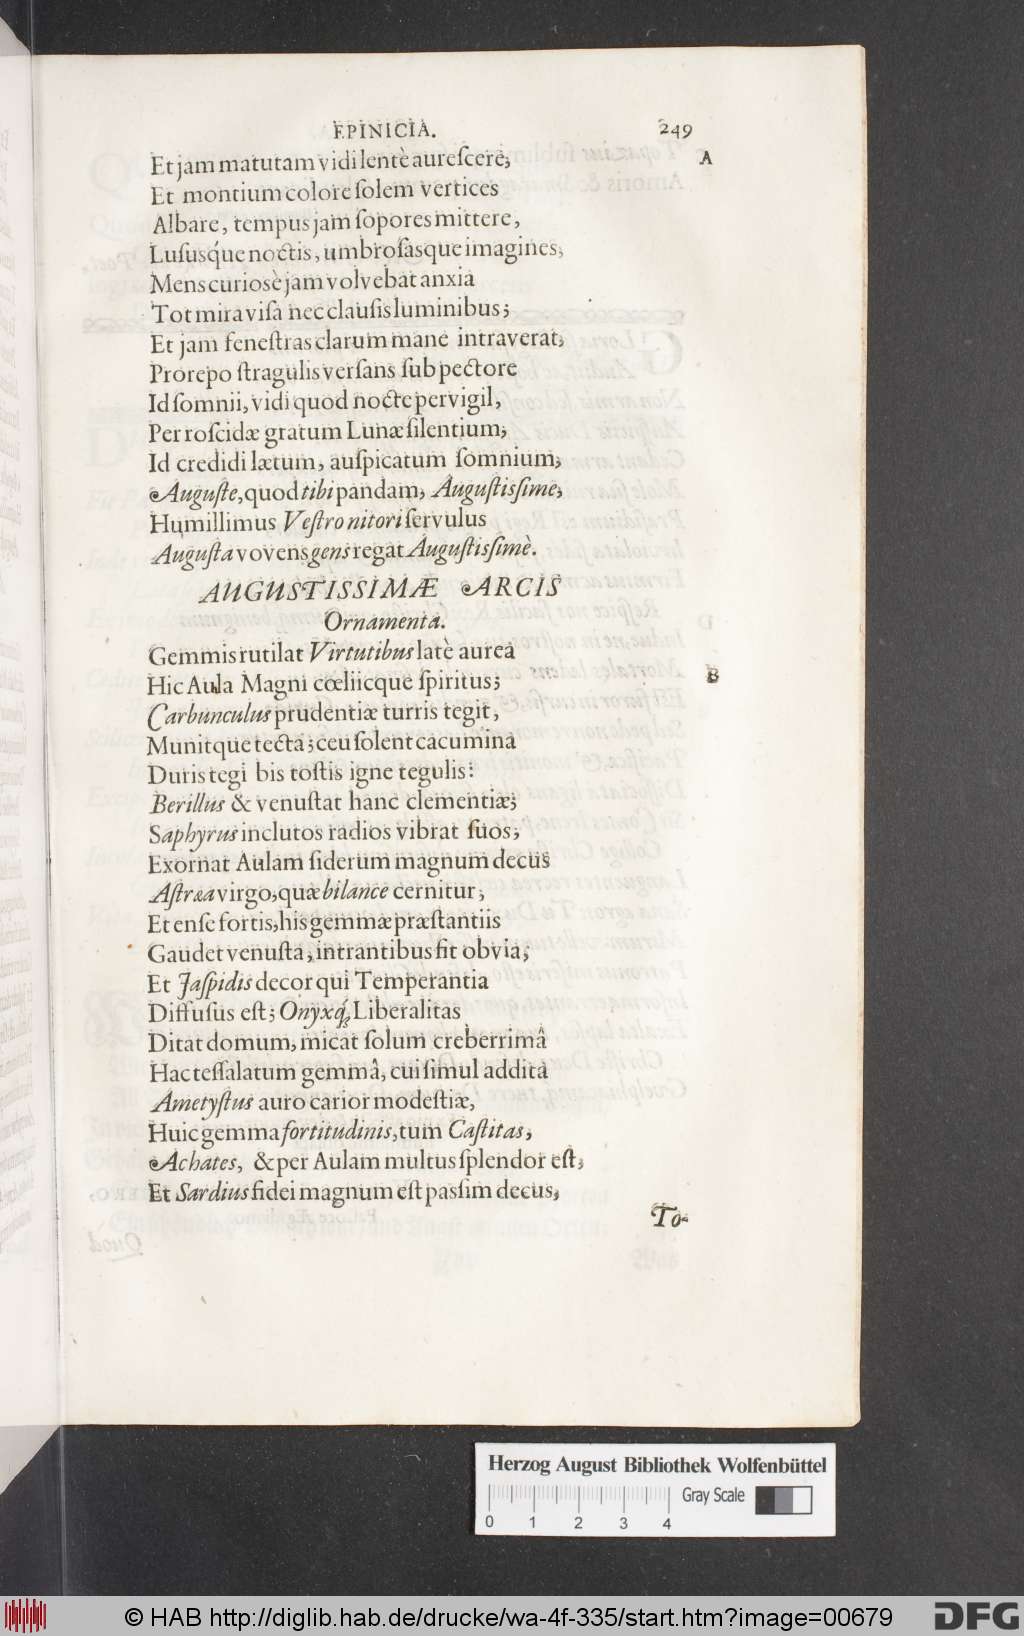 EPINICIA. 249
Et jam matutam vidi lentè aurescere, A
Et montium colore solem vertices
Albare, tempus jam sopores mittere,
Lususq́ue noctis, umbrosasque imagines,
Mens curiosè jam volvebat anxia
Tot mira visa nec clausis luminibus;
Et jam fenestras clarum mane intraverat,
Prorepo stragulis versans sub pectore
Id somnii, vidi quod nocte pervigil,
Per roscidæ gratum Lunæ silentium,
Id credidi lætum, auspicatum somnium,
Auguste, quod tibi pandam, Augustissime,
Humillimus Vestro nitori servulus
Augusta vovens gens regat Augustissimè.
AUGUSTISSIMÆ ARCIS
Ornamenta.
Gemmis rutilat Virtutibus latè aurea
Hic Aula Magni cœliicque spiritus; B
Carbunculus prudentiæ turris tegit,
Munitque tecta; ceu solent cacumina
Duris tegi bis tostis igne tegulis:
Berillus & venustat hanc clementiæ;
Saphyrus inclutos radios vibrat suos,
Exornat Aulam siderum magnum decus
Astræa virgo, quæ bilance cernitur,
Et ense fortis, his gemmæ præstantiis
Gaudet venusta, intrantibus fit obvia;
Et Jaspidis decor qui Temperantia
Diffusus est; Onyxq́; Liberalitas
Ditat domum, micat solum creberrimâ
Hac tessalatum gemmâ, cui simul addita
Ametystus auro carior modestiæ,
Huic gemma fortitudinis, tum Castitas,
Achates, & per Aulam multus splendor est,
Et Sardius fidei magnum est passim decus,
To-
Herzog August Bibliothek Wolfenbüttel
Gray Scale
0 1 2 3 4
© HAB http://diglib.hab.de/drucke/wa-4f-335/start.htm?image=00679
DFG